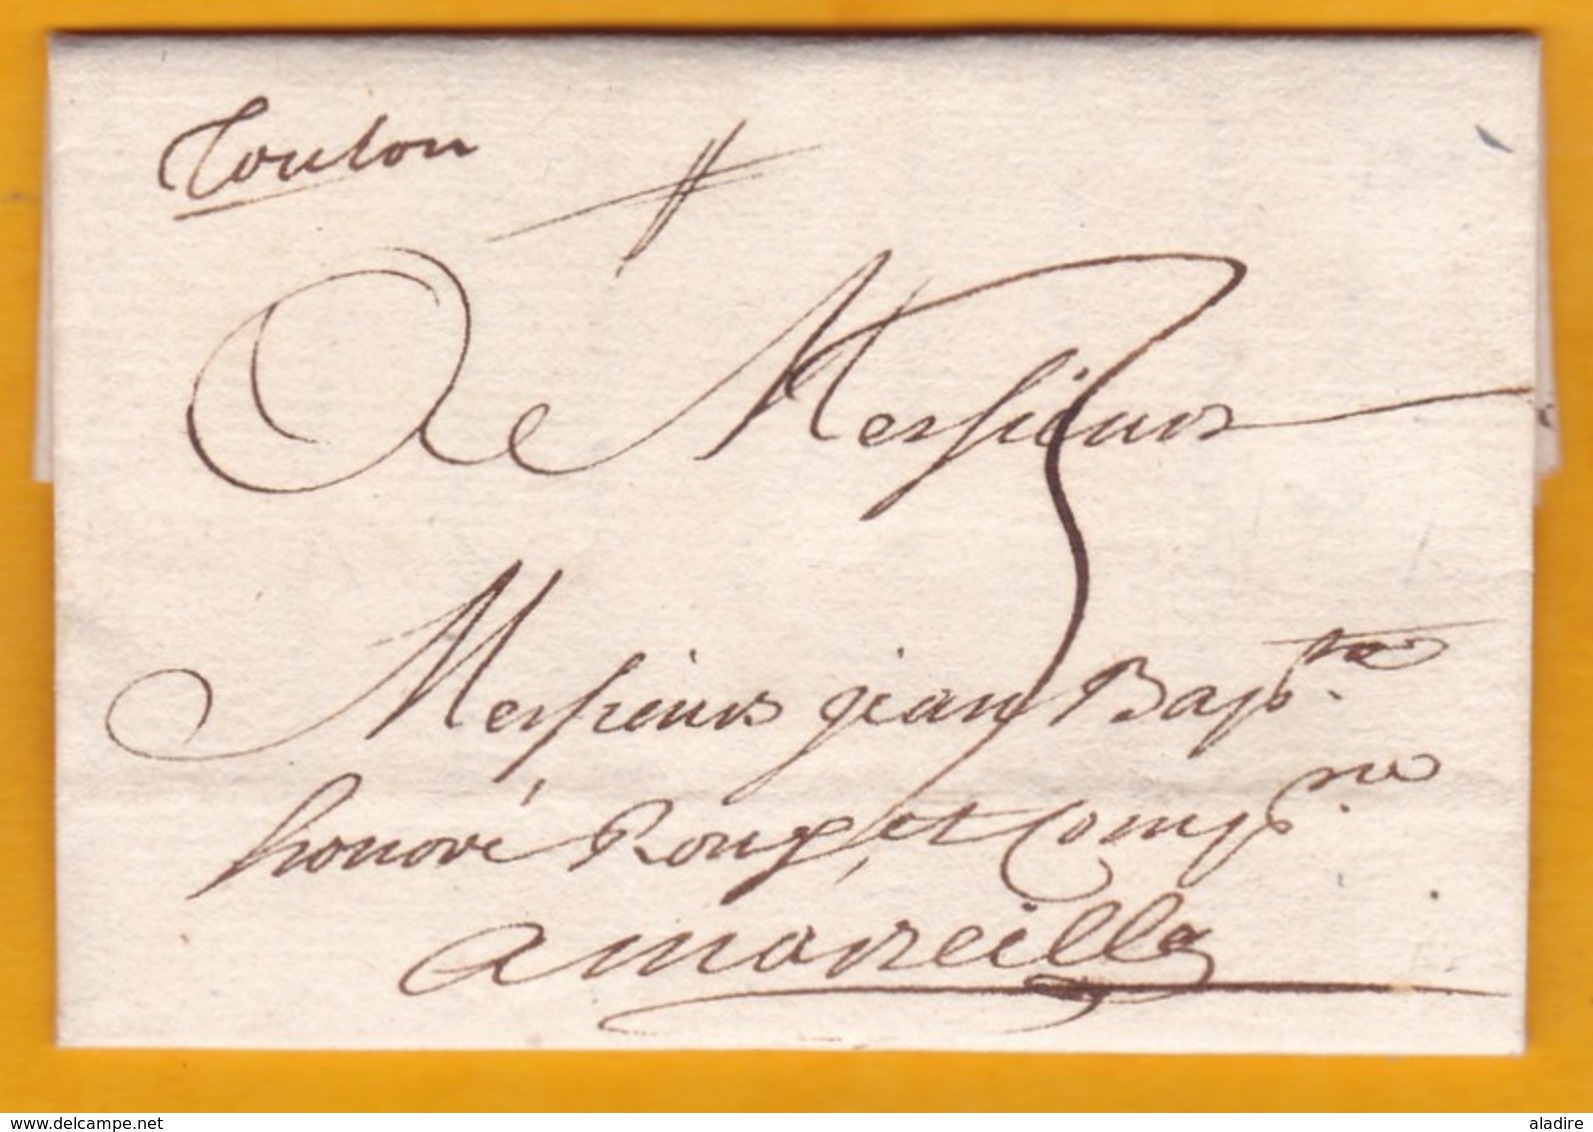 Toulon
A Messieurs
3
Messieurs jean Bap.te
honoré Roux, et Comp.nie
a marseille
delcampe.net
aladire